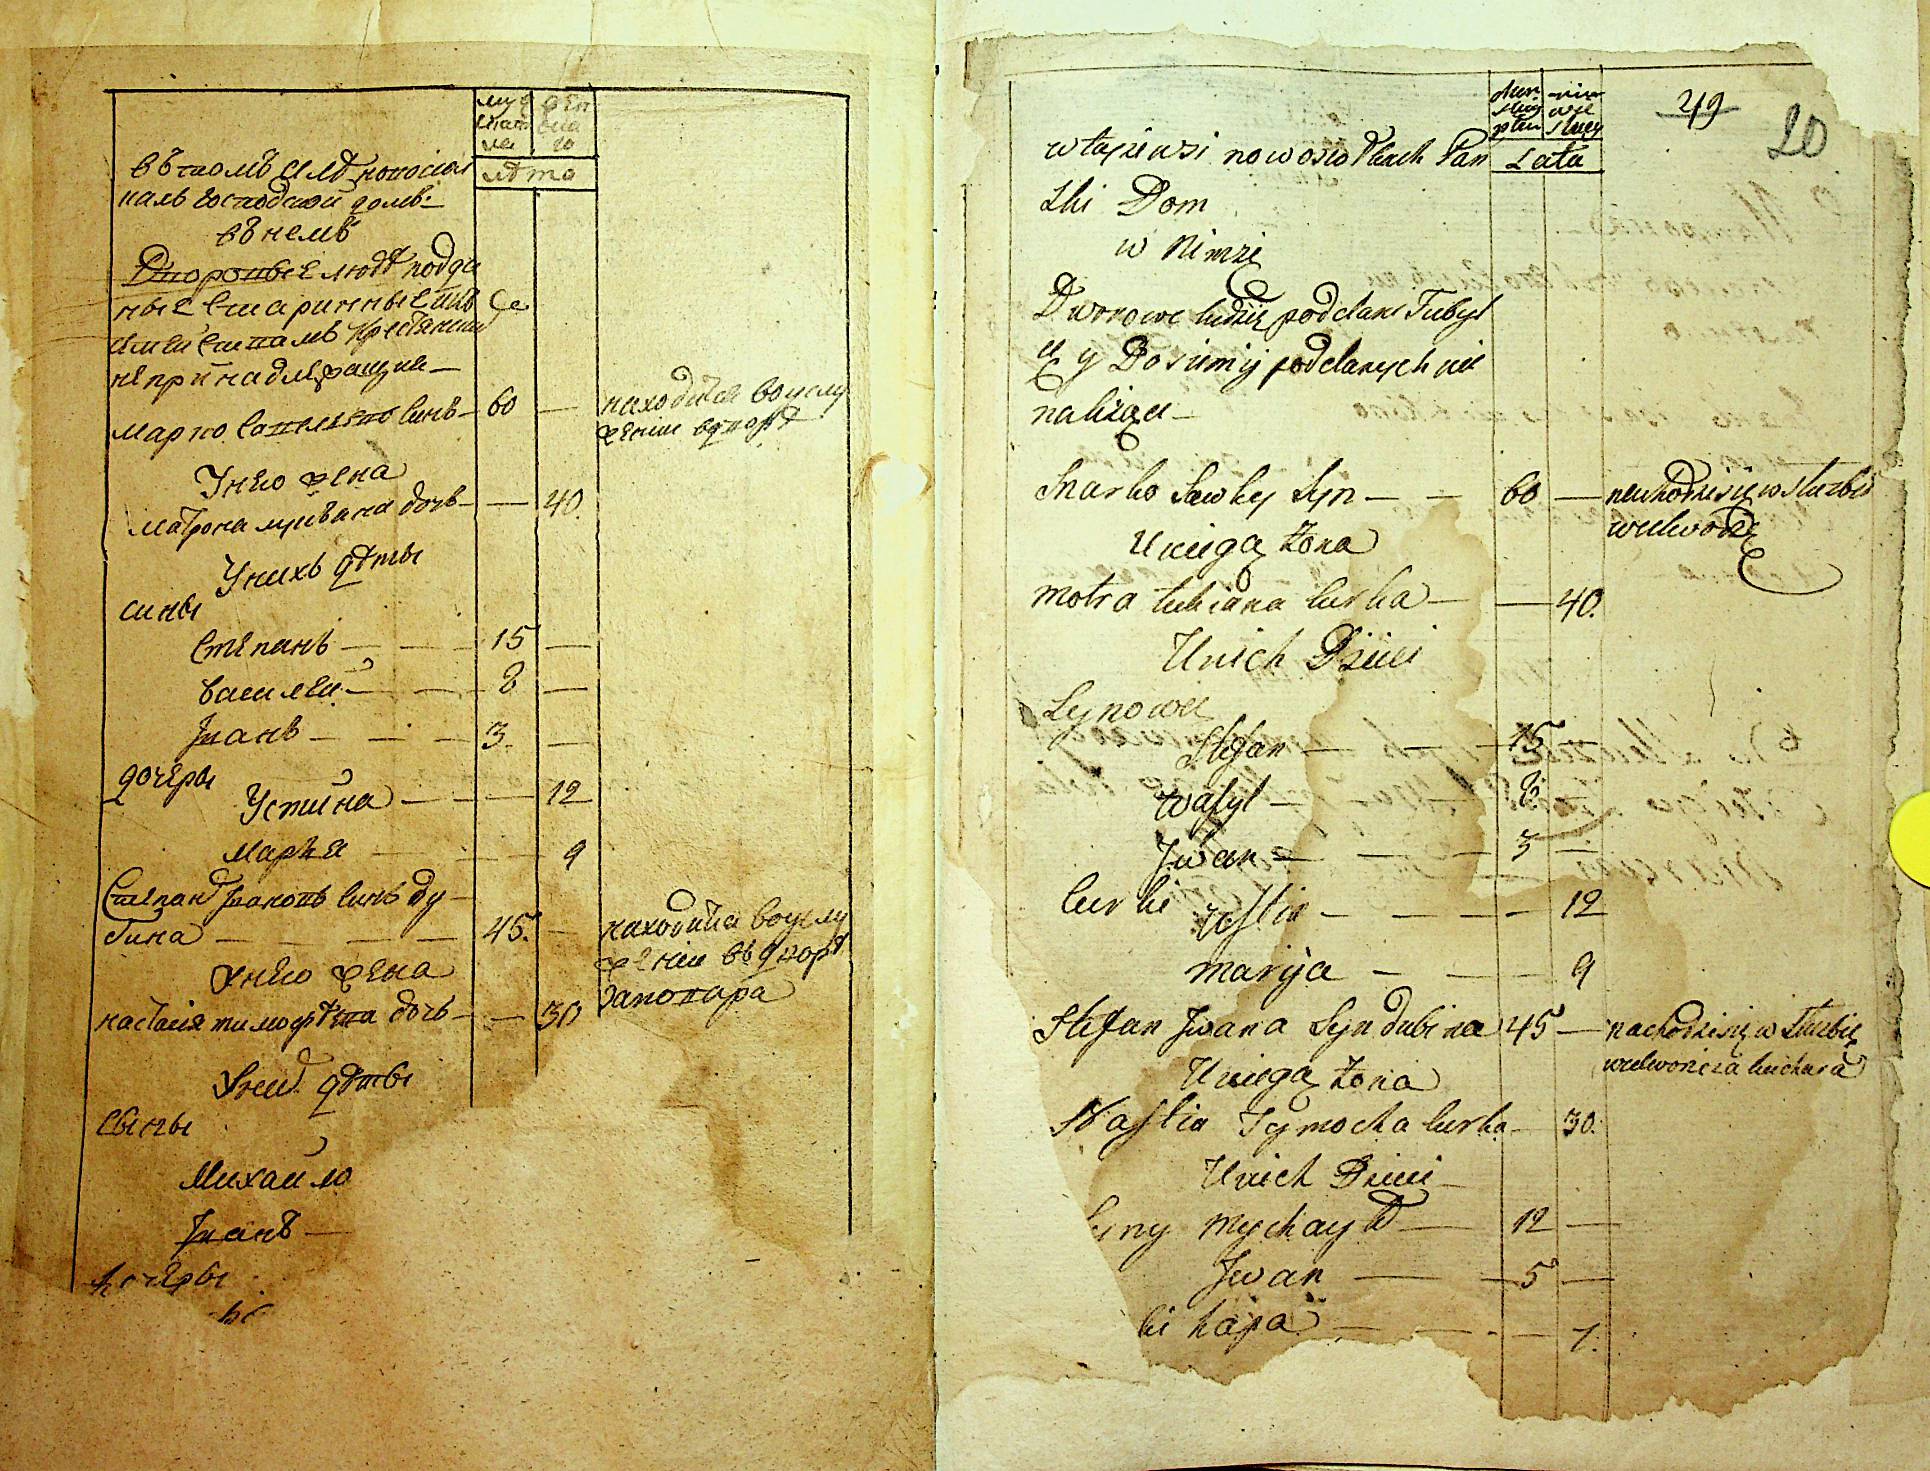 муж
ска
го
жен
ска
го
лѣта
въ томъ селѣ новосіол
кахъ господской домъ
въ немъ
Дворовые люде подда
ные старинные и въ
крестьянам
не принадлежащие
Марко Савельевъ синъ — 60 — находится во услу
жении в дворѣ
У него жена
Матрона лукъвана дочь — — 40.
У нихъ дѣты
сины
Степанъ — — — 15 —
Василей — — 8 —
Іванъ — — — 3. —
дочеры
Устина — — — 12
Марья — — 9
Степан Івановъ синъ Ду-
бина — — — — 45. — находится во услу
жении въ дворѣ
за повара
У него жена
настасія тимофѣева дочь — — 30
У них дѣты
сыны
Михаило
Іванъ —
дочеры
49
20
Lata
w tejze wsi nowosiołkach Pan
ski Dom
w Nimże
Dworowe ludzie poddane Tubyl
cy
należący
Marko Sawky Syn — — 60 — nachodzisię w służbie
we dworze
U niego żona
Motra Lukiana curka — — 40.
U nich Dzieci
Synowie
Stefan — — — 15 —
Wasyl — 8
Jwan — — — 3 —
Curki Ustin — — — — 12
Marija — — — 9
Stefan Jwana Syn dubina 45 — nachodzisię w służbie
we dworze za kuchara
U niego żona
Nastia Tymocha curka — 30.
U nich Dzieci —
Syny Mychayło — 12 —
Jwan — — 5 —
ki hapa — — — 7.